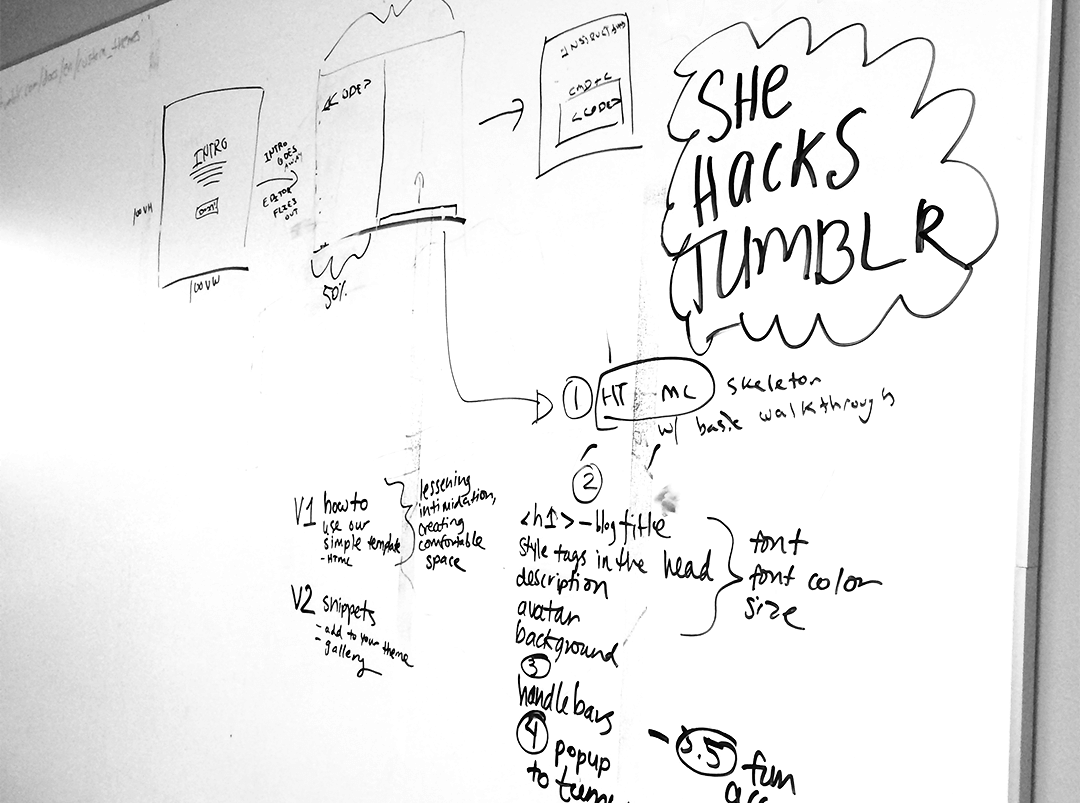 INTRO
100VW
INTRO
GOES
AWAY
EDITOR
FLIES
OUT
<CODE>
50%
CMD+C
<CODE>
SHE
HACKS
TUMBLR
1
skeleton
w/ basic walkthrough
2
<h1> - blog title
style tags in the head
description
avatar
background
font
font color
size
3
handlebars
4 popup
to
- 3.5 fun
V1 how to
use our
simple template
- HTML
lessening
intimidation,
creating
comfortable
space
V2 snippets
- add to your theme
- gallery